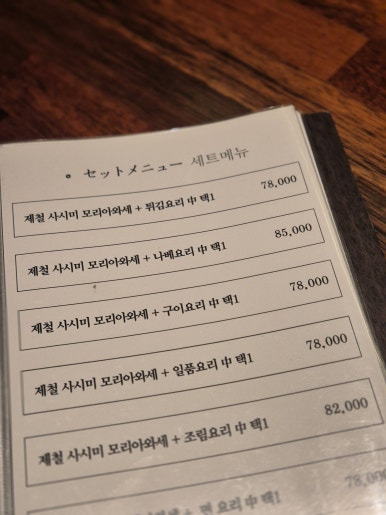 セットメニュー 세트메뉴
제철 사시미 모리아와세 + 튀김요리 中 택1 78,000
제철 사시미 모리아와세 + 나베요리 中 택1 85,000
제철 사시미 모리아와세 + 구이요리 中 택1 78,000
제철 사시미 모리아와세 + 일품요리 中 택1 78,000
제철 사시미 모리아와세 + 조림요리 中 택1 82,000
사시미 모리아와세 + 면 요리 中 택1 78,000